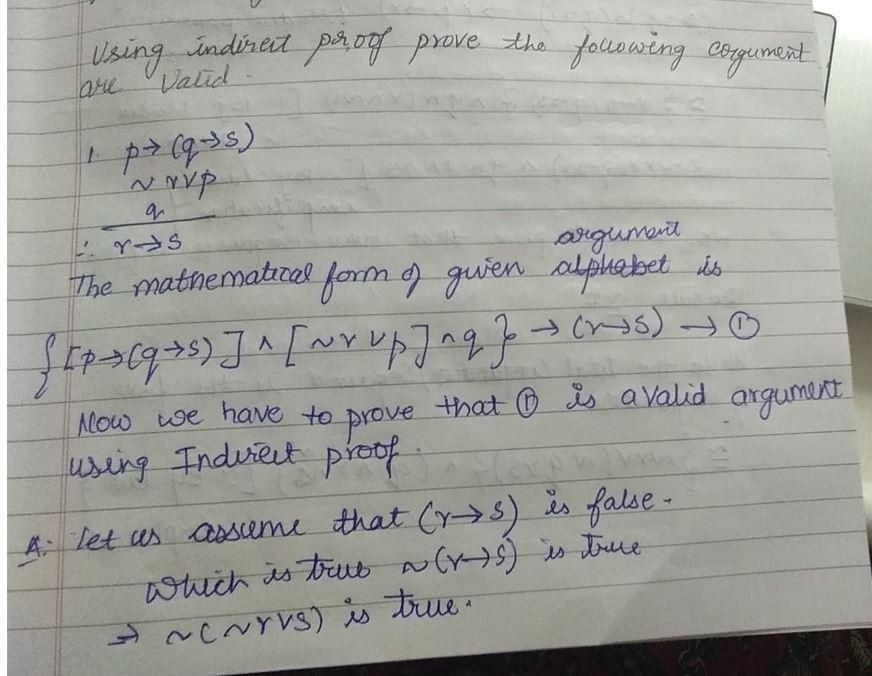 Using indirect proof prove the following argument
are Valid.
1. p→(q→s)
~r∨p
q
∴ r→s
argument
The mathematical form of given alphabet is
{[p→(q→s)]∧[~r∨p]∧q}→(r→s)→①
Now we have to prove that ① is a valid argument
using Indirect proof.
A: Let us assume that (r→s) is false.
which is true ~(r→s) is true
⇒ ~(~r∨s) is true.